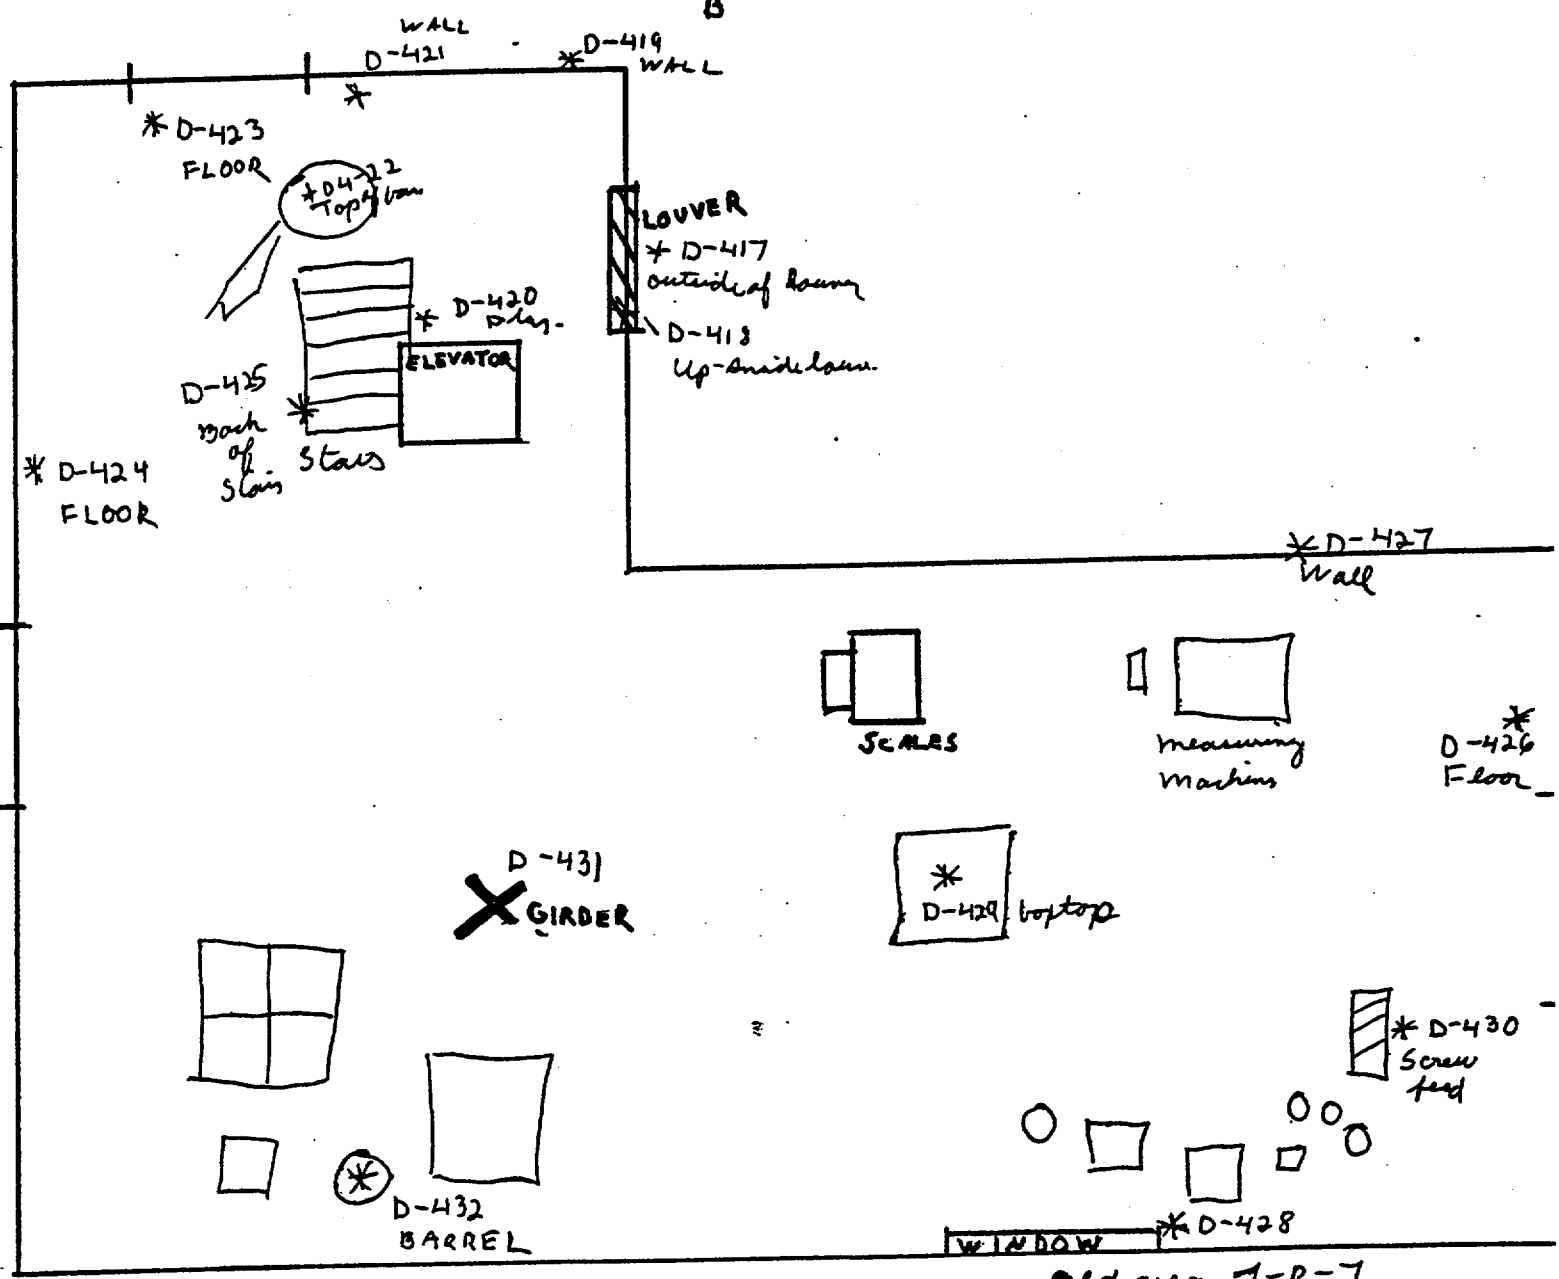 B
WALL
D-421
D-419
WALL
D-423
FLOOR
D4-22
Top of
LOUVER
D-417
outside of
D-418
Up-
D-420
ELEVATOR
D-425
Back
of
Stairs
Stairs
D-424
FLOOR
D-427
Wall
SCALES
measuring
Machine
D-426
Floor
D-431
GIRDER
D-429 boxtop
D-430
Screw
feed
D-432
BARREL
D-428
WINDOW